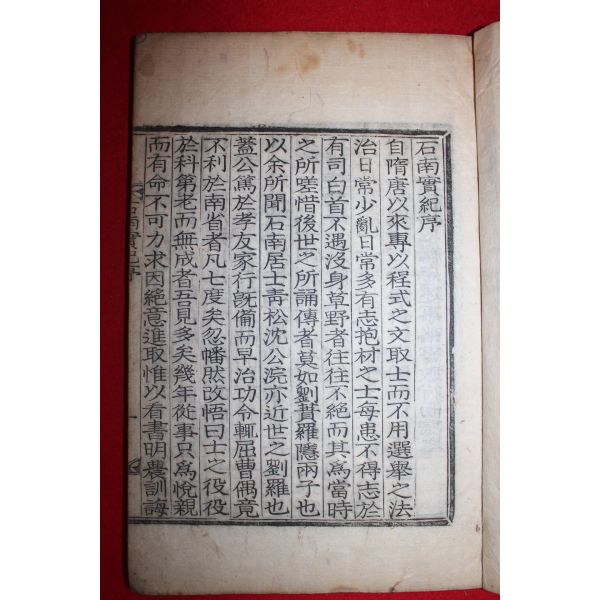 石南實紀序
自隋唐以來專以程式之文取士而不用選舉之法
治日常少亂日常多有志抱材之士每患不得志於
有司白首不遇沒身草野者往往不絕而其爲當時
之所嗟惜後世之所誦傳者莫如劉蕡羅隱兩子也
以余所聞石南居士靑松沈公浣亦近世之劉羅也
蓋公篤於孝友家行旣備而早治功令輒屈曹偶竟
不利於南省者凡七度矣忽幡然改悟曰士之役役
於科第老而無成者吾見多矣幾年從事只爲悅親
而有命不可力求因絶意進取惟以看書明農訓誨
石南實紀序
一